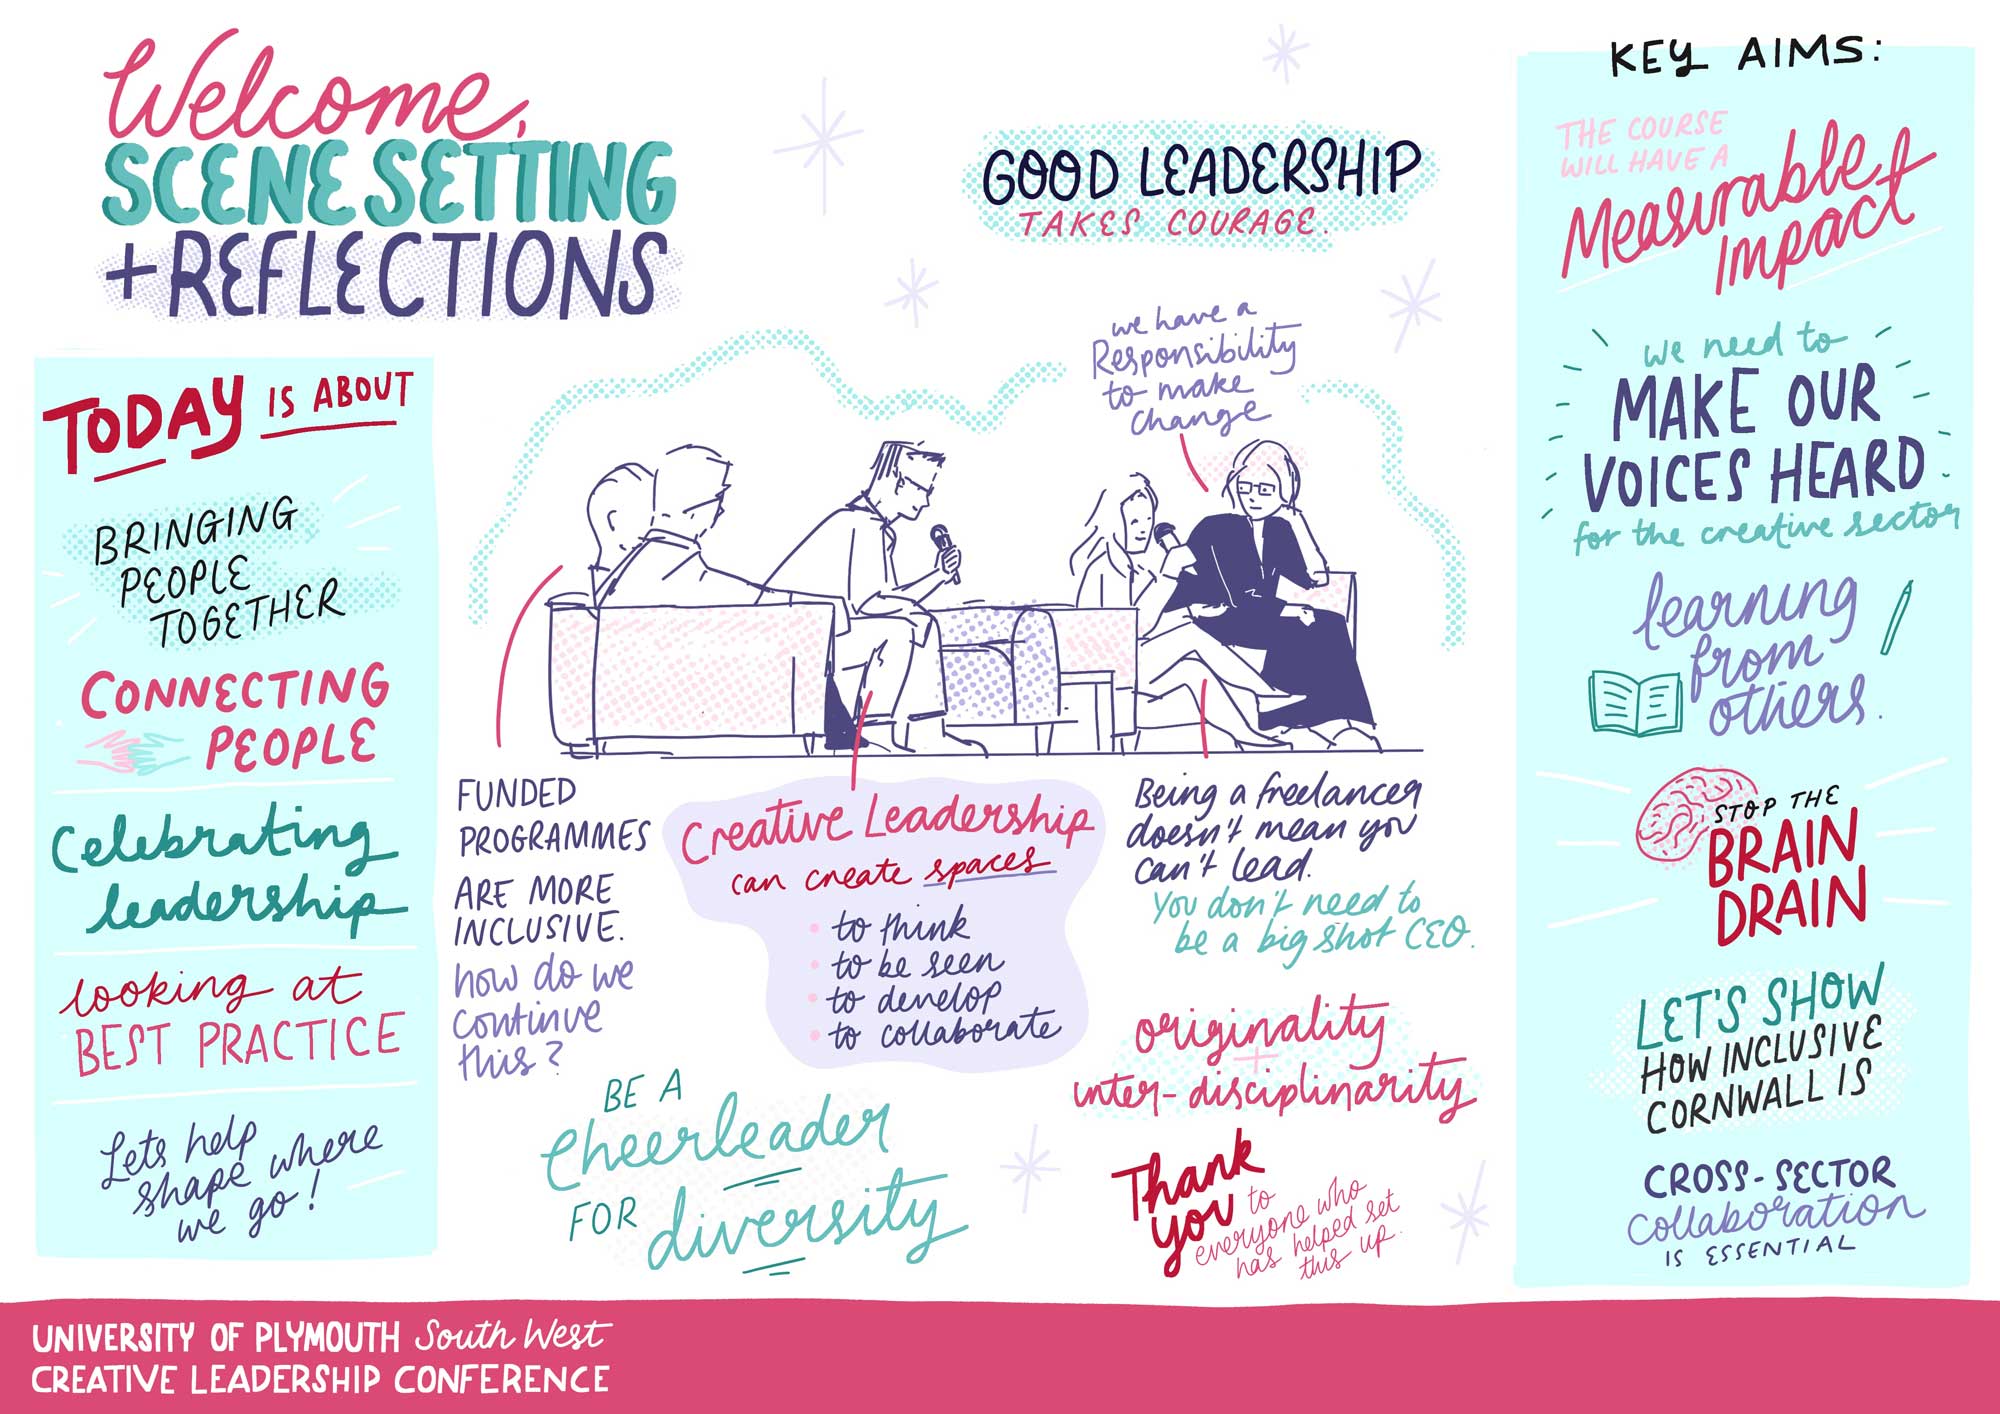 Welcome,
SCENE SETTING
+ REFLECTIONS
TODAY IS ABOUT
BRINGING
PEOPLE
TOGETHER
CONNECTING
PEOPLE
Celebrating
leadership
looking at
BEST PRACTICE
Lets help
shape where
we go!
GOOD LEADERSHIP
TAKES COURAGE.
we have a
Responsibility
to make
change
FUNDED
PROGRAMMES
ARE MORE
INCLUSIVE.
how do we
continue
this?
Creative Leadership
can create spaces
• to think
• to be seen
• to develop
• to collaborate
Being a freelancer
doesn't mean you
can't lead.
You don't need to
be a big shot CEO.
BE A
Cheerleader
FOR diversity
originality
+
inter-disciplinarity
Thank
you to
everyone who
has helped set
this up.
KEY AIMS:
THE COURSE
WILL HAVE A
Measurable
Impact
we need to
MAKE OUR
VOICES HEARD
for the creative sector
learning
from
others.
STOP THE
BRAIN
DRAIN
LET'S SHOW
HOW INCLUSIVE
CORNWALL IS
CROSS-SECTOR
collaboration
IS ESSENTIAL
UNIVERSITY OF PLYMOUTH South West
CREATIVE LEADERSHIP CONFERENCE